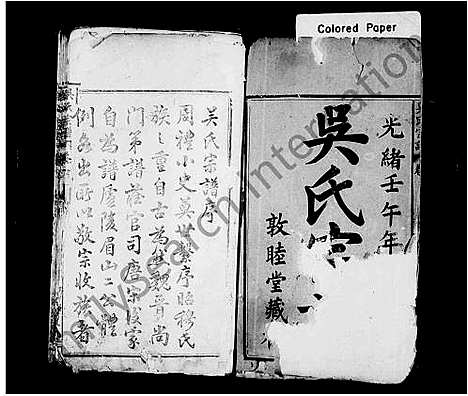 Colored Paper
光緒壬午年
吳氏宗
敦睦堂藏
吳氏宗譜序
周禮小史奠世繫序昭穆氏
族之重自古為然魏晉尚
門第譜蓋官司唐宋後家
自為譜廬陵眉山二公體
例為出所以敬宗收族者
FamilySearch International